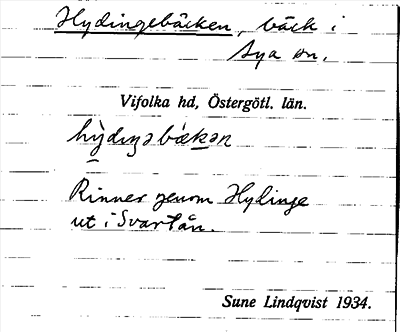 Hydingebäcken, bäck i
Sya sn.
Vifolka hd, Östergötl. län.
hỳdıŋəbækən
Rinner genom Hydinge
ut i Svartån.
Sune Lindqvist 1934.